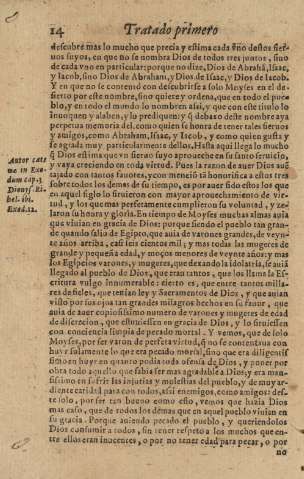 14 Tratado primero
descubre mas lo mucho que precia y estima cada vno destos sier-
uos suyos, en que no se nombra Dios de todos tres juntos, sino
de cada vno en particular: porque no dize, Dios de Abrahã, Isaac,
y Iacob, sino Dios de Abraham, y Dios de Isaac, y Dios de Iacob.
Y en que no se contentó con descubrirse a solo Moyses en el de-
sierto por este nombre, sino quiere y ordena, que en todo el pue-
blo, y en todo el mundo lo nombren assi, y que con este titulo lo
inuoquen y alaben, y lo prediquen: y q̃ debaxo deste nombre aya
perpetua memoria del, como quien se honra de tener tales sieruos
y amigos, como Abraham, Isaac, y Iacob, y como quien gusta y
se agrada muy particularmente dellos. Hasta aqui llega lo mucho
q̃ Dios estima que vn sieruo suyo aprouche en su santo seruicio,
y vaya creciendo en toda virtud. Pues la razon de auer Dios aué-
tajado con tantos fauores, y con menció tã honorifica a estos tres
sobre todos los demas de su tiempo, es por auer sido estos los que
en aquel siglo lo siruieron con mayor aprouechamiento de vir-
tud, y los que mas perfetamente cumplieron su voluntad, y ze-
laron su honra y gloria. En tiempo de Moyses muchas almas auia
que viuian en gracia de Dios: porque siendo el pueblo tan gran-
de quando salio de Egipto, que auia de varones grandes, de veyn-
te años arriba, casi seis cientos mil; y mas todas las mugeres de
grande y pequeña edad, y moços menores de veynte años: y mas
los Egipcios varones, y mugeres, que dexando la idolatria, se auiã
llegado al pueblo de Dios, que eran tantos, que los llama la Es-
critura vulgo innumerable: cierto es, que entre tantos milla-
res de fieles, que tenian ley y Sacramentos de Dios, y que auian
visto por sus ojos tan grandes milagros hechos en su fauor, que
auia de auer copiosissimo numero de varones y mugeres de edad
de discrecion, que estuuiessen en gracia de Dios, y lo siruiessen
con conciencia limpia de pecado mortal. Y vemos, que de solo
Moyses, por ser varon de perfeta virtud, q̃ no se contentaua con
huyr solamente lo que era pecado mortal, sino que era diligentis-
simo en huyr en quanto podia toda ofensa de Dios, y poner por
obra todo aquello que sabia ser mas agradable a Dios; y era man-
sissimo en sufrir las injurias y molestias del pueblo, y de muy ar-
diente caridad para con todos, assi enemigos, como amigos: des-
te solo, por ser tan bueno como esto, vemos que hazia Dios
mas caso, que de todos los demas que en aquel pueblo viuian en
su gracia. Porque auiendo pecado el pueblo, y queriendolos
Dios consumir a todos, sin tener respeto a los muchos que en-
tre ellos eran inocentes, o por no tener edad para pecar, o por
no
Exo-
dum cap. 3.
Dionys. Ri-
kel. ibi.
Exod. 12.